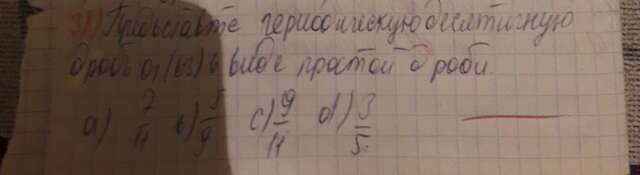 31) Представте периодическую десятичную
дробь 0,(63) в виде простой дроби.
a) 7/11 b) 5/9 c) 9/11 d) 3/5